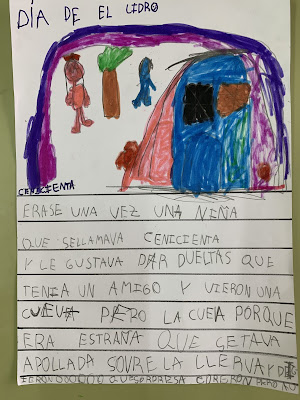 DÍA DE EL LIDRO
CENICIENTA
ERASE UNA VEZ UNA NIÑA
QUE SELLAMAVA CENICIENTA
Y LE GUSTAVA DAR DUELTAS QUE
TENIA UN AMIGO Y VIERON UNA
CUEVA PERO LA CUEVA PORQUE
ERA ESTRAÑA QUE GETAVA
APOLLADA SOVRE LA LLERVA Y DE